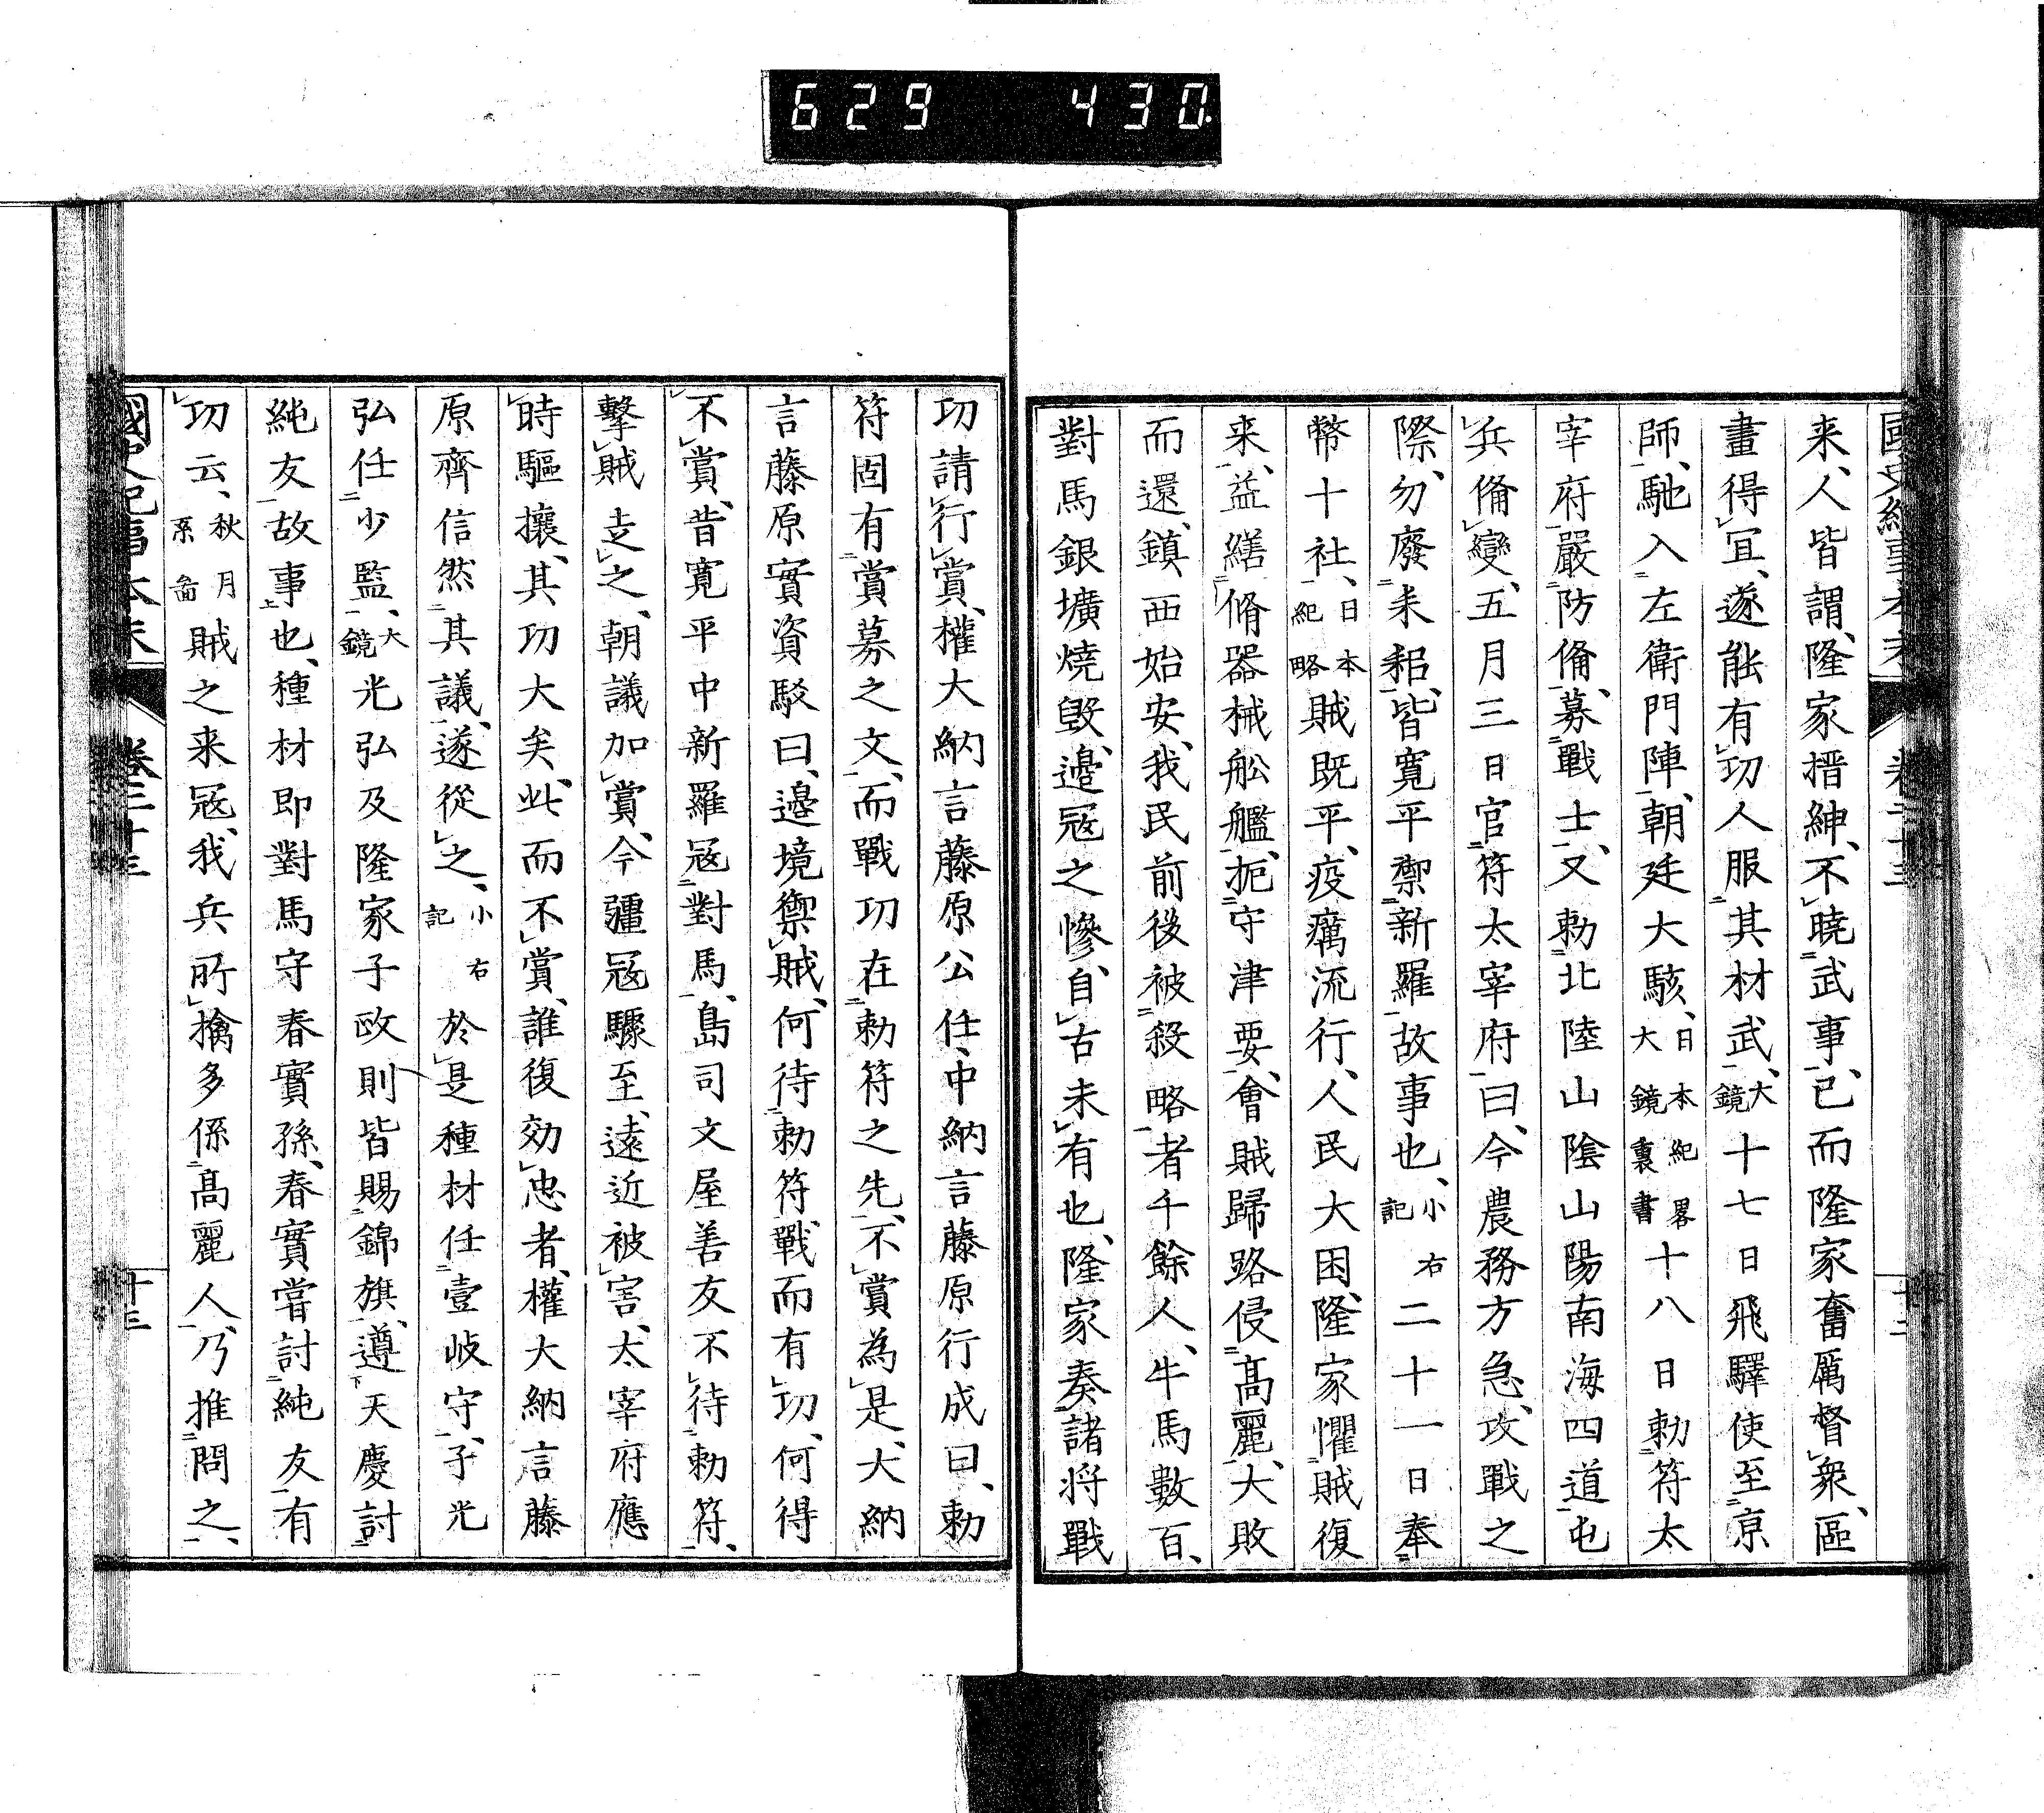 629 430
來、人皆謂、隆家搢紳、不曉武事、已而隆家奮厲督衆、區
畫得宜、遂能有功人服其材武、大鏡十七日飛驛使至京
師、馳入左衛門陣、朝廷大駭、日本紀畧大鏡裏書十八日勅符太
宰府、嚴防俻、募戰士、又勅北陸山陰山陽南海四道屯
兵俻變、五月三日官符太宰府曰、今農務方急、攻戰之
際、勿廢耒耜、皆寛平禦新羅故事也、小右記二十一日奉
幣十社、日本紀略賊既平、疫癘流行、人民大困、隆家懼賊復
来、益繕脩器械舩艦、扼守津要、會賊歸路侵高麗、大敗
而還、鎮西始安、我民前後被殺略者千餘人、牛馬數百、
對馬銀壙燒毀、邊冦之慘、自古未有也、隆家奏諸将戰
功請行賞、權大納言藤原公任、中納言藤原行成曰、勅
符固有賞募之文、而戰功在勅符之先、不賞為是、大納
言藤原實資駁曰、邊境禦賊、何待勅符、戰而有功、何得
不賞、昔寛平中新羅冦對馬、島司文屋善友不待勅符、
擊賊走之、朝議加賞、今疆冦驟至、遠近被害、太宰府應
時驅攘、其功大矣、此而不賞、誰復効忠者、權大納言藤
原齊信然其議、遂從之、小右記於是種材任壹岐守、子光
弘任少監、大鏡光弘及隆家子政則皆賜錦旗、遵天慶討
純友故事也、種材即對馬守春實孫、春實嘗討純友有
功云、秋月系啚賊之来冦、我兵所擒多係高麗人、乃推問之、
國史紀事本末 卷二十三 十三